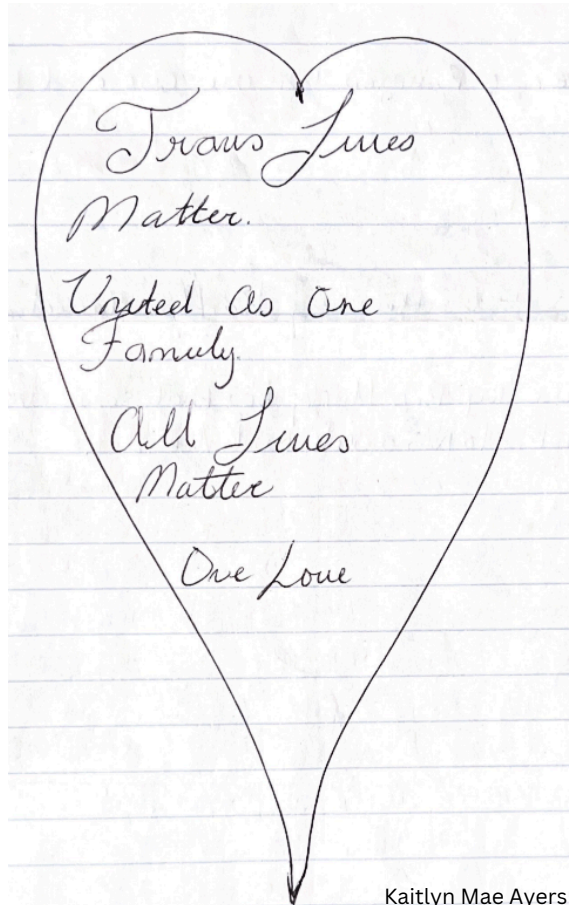 Trans Lives
Matter.
United As One
Family.
All Lives
Matter
One Love
Kaitlyn Mae Ayers